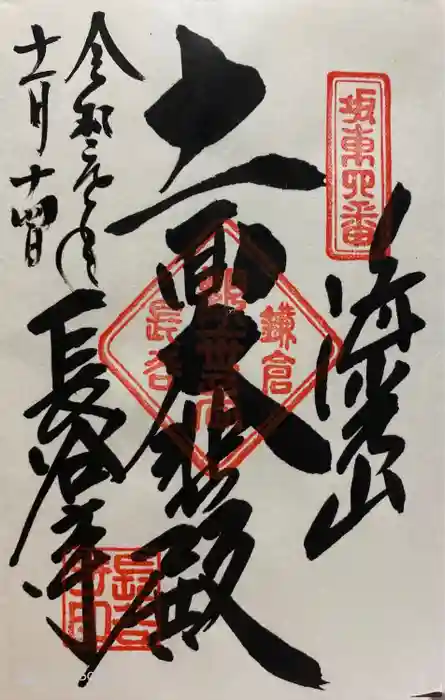 坂東四番
海光山
十一面大悲殿
鎌倉
長谷
令和元年
十一月十四日
長谷寺